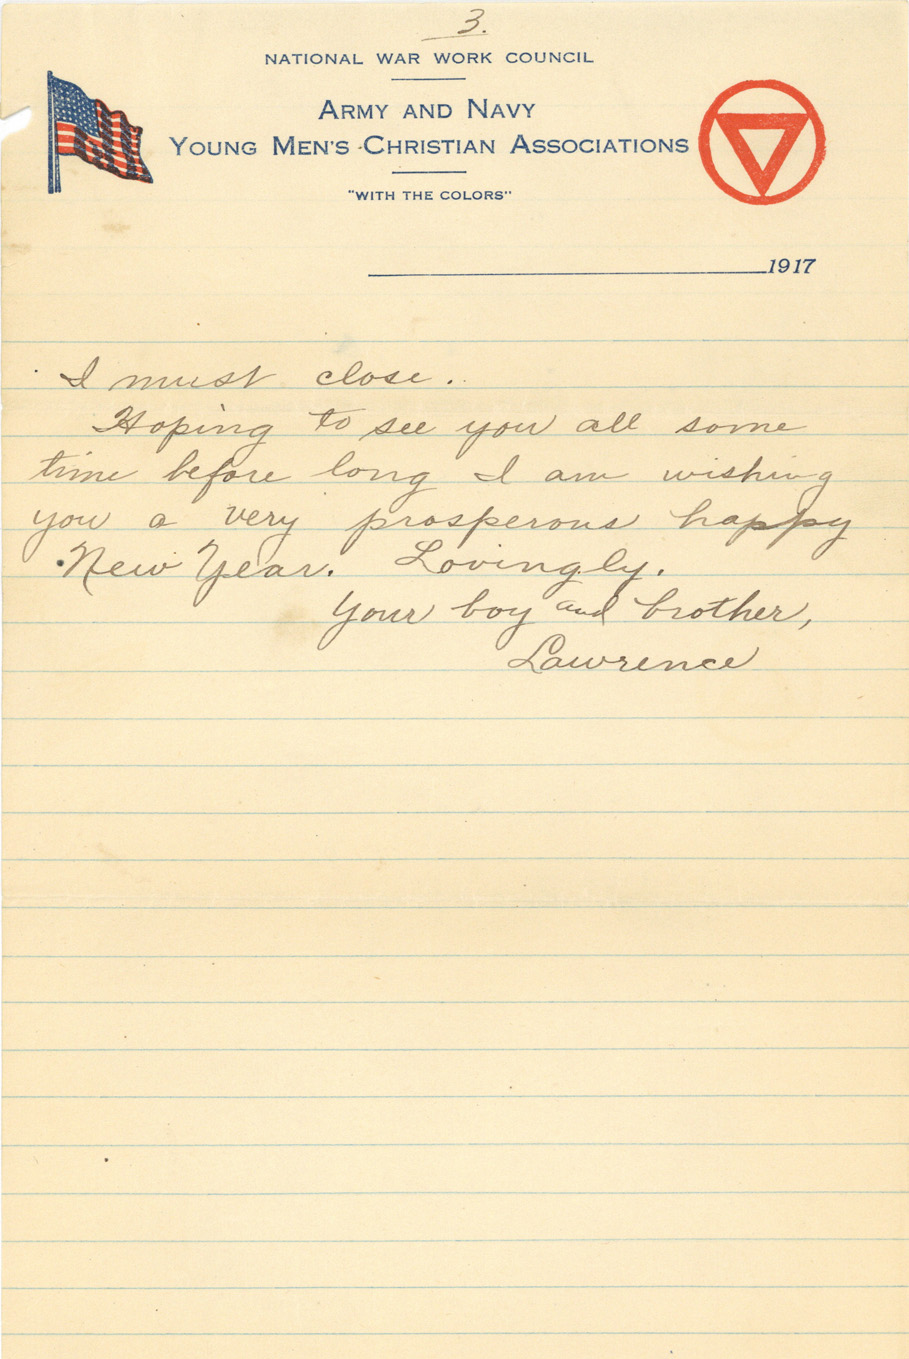 3.
NATIONAL WAR WORK COUNCIL
ARMY AND NAVY
YOUNG MEN'S CHRISTIAN ASSOCIATIONS
"WITH THE COLORS"
1917
I must close.
Hoping to see you all some
time before long I am wishing
you a very prosperous happy
New Year. Lovingly.
Your boy and brother,
Lawrence